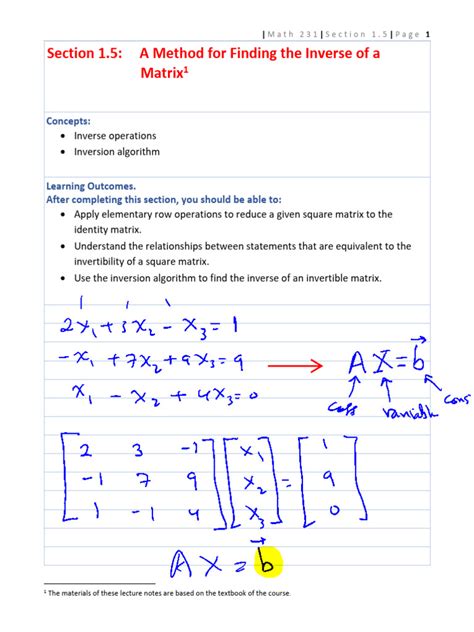 |Math 231|Section 1.5|Page 1
Section 1.5: A Method for Finding the Inverse of a
Matrix¹
Concepts:
• Inverse operations
• Inversion algorithm
Learning Outcomes.
After completing this section, you should be able to:
• Apply elementary row operations to reduce a given square matrix to the
identity matrix.
• Understand the relationships between statements that are equivalent to the
invertibility of a square matrix.
• Use the inversion algorithm to find the inverse of an invertible matrix.
2x₁ + 3x₂ − x₃ = 1
−x₁ + 7x₂ + 9x₃ = 9
x₁ − x₂ + 4x₃ = 0
→ AX = b⃗
coeff variable cons
[2 3 −1] [x₁] = [1]
[−1 7 9] [x₂] = [9]
[1 −1 4] [x₃] = [0]
AX = b⃗
¹ The materials of these lecture notes are based on the textbook of the course.